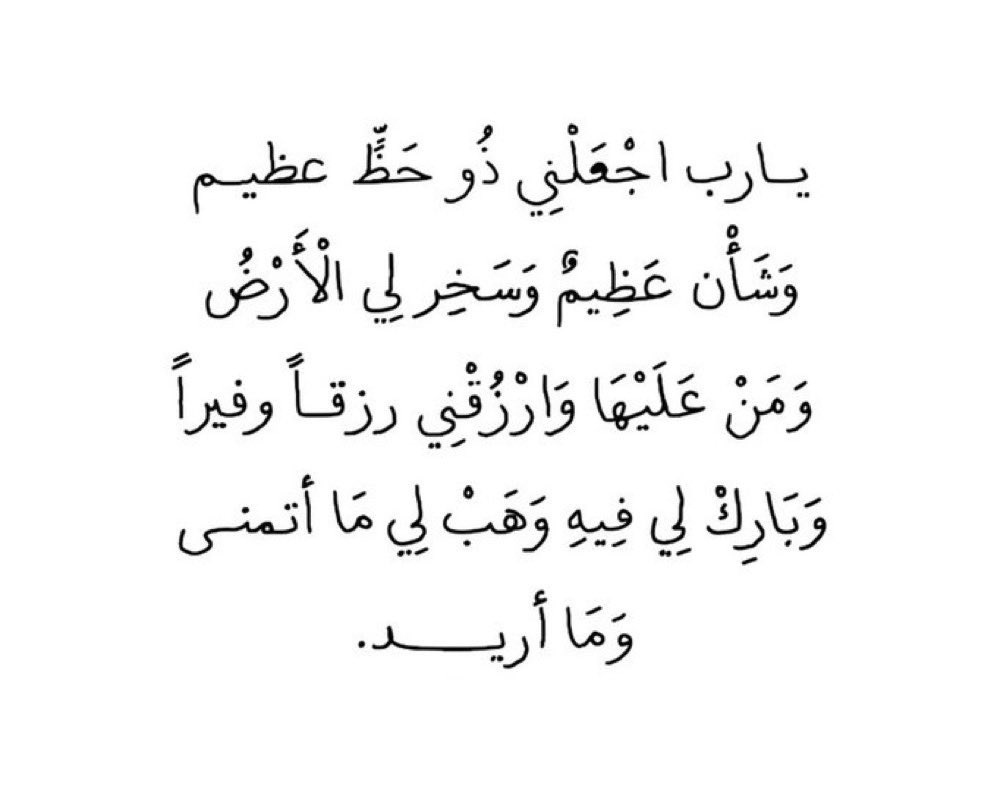 يارب اجْعَلْنِي ذُو حَظٍّ عظيم
وَشَأْن عَظِيمٌ وَسَخِر لِي الْأَرْضُ
وَمَنْ عَلَيْهَا وَارْزُقْنِي رزقاً وفيراً
وَبَارِكْ لِي فِيهِ وَهَبْ لِي مَا أتمنى
وَمَا أريد.